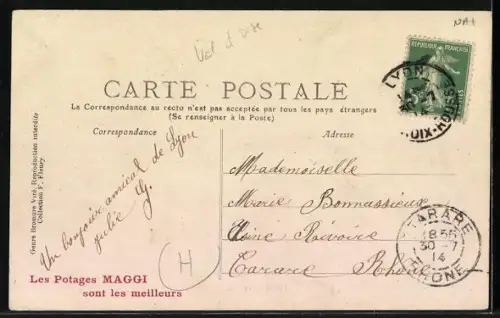 Val d'Oise
CARTE POSTALE
La Correspondance au recto n'est pas acceptée par tous les pays étrangers
(Se renseigner à la Poste)
Correspondance
Adresse
Un bonjour amical de Lyon
Julie G.
Mademoiselle
Marie Bonnassieux
Usine Rivoire
Tarare Rhône
H
Les Potages MAGGI
sont les meilleurs
Collection F. Fleury
REPUBLIQUE FRANÇAISE
LYON
CROIX-ROUSSE
TARARE
18 55
30-7
14
RHONE